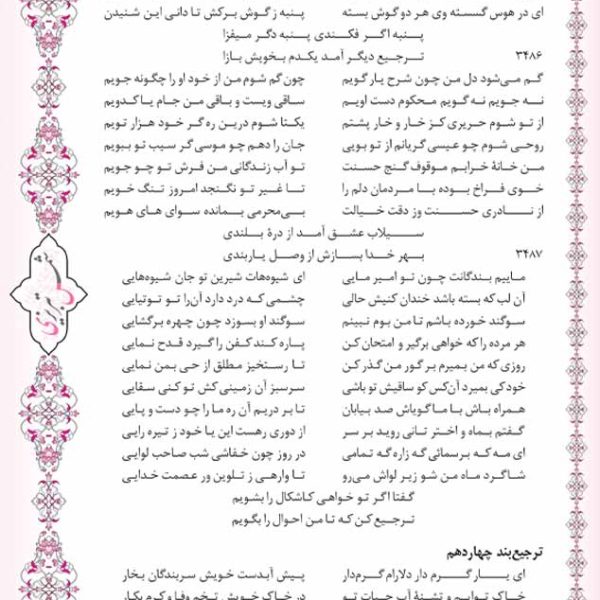 ای در هوس گسسته وی هر دو گوش بسته پنبه ز گوش برکش تا دانی این شنیدن
پنبه اگر فکندی پنبه دگر میفزا
۳۴۸۶ ترجیع دیگر آمد یکدم بخویش بازا
گم می‌شود دل من چون شرح یار گویم چون گم شوم من از خود او را چگونه جویم
نه جویم نه گویم محکوم دست اویم ساقی ویست و باقی من جام یا کدویم
از تو شوم حریری کز خار و خار پشتم یکتا شوم درین ره گر خود هزار تویم
روحی شوم چو عیسی گریانم از تو بویی جان را دهم چو موسی گر سیب تو ببویم
من خانهٔ خرابم موقوف گنج حسنت تو آب زندگانی من فرش تو چو جویم
خوی فراخ بوده با مردمان دلم را تا غیر تو نگنجد امروز تنگ خویم
از نادری حسنت وز دقت خیالت بی‌محرمی بمانده سوای های هویم
سیلاب عشق آمد از درهٔ بلندی
۳۴۸۷ بهر خدا بسازش از وصل یار بندی
ماییم بندگانت چون تو امیر مایی ای شیوهات شیرین تو جان شیوه‌هایی
آن لب که بسته باشد خندان کنیش حالی چشمی که درد دارد آن‌را تو توتیایی
سوگند خورده باشم تا من بوم نبینم سوگند او بسوزد چون چهره برگشایی
هر مرده را که خواهی برگیر و امتحان کن پاره کند کفن را گیرد قدح نمایی
روزی که من بمیرم بر گور من گذر کن تا رستخیز مطلق از حی بمن نمایی
خود کی بمیرد آن‌کس کو ساقیش تو باشی سرسبز آن زمینی کش تو کنی سقایی
همراه باش با ما گو باش صد بیابان تا بر دریم آن ره ما را چو دست و پایی
گفتم بماه و اختر تا نی روید بر سر از دوری رهست این یا خود ز تیره رایی
ای مه که برسمائی گه زاره گه تمامی در روز چون خفاشی شب صاحب لوایی
شاگرد ماه من شو زیر لواش می‌رو تا وارهی ز تلوین ور عصمت خدایی
گفتا اگر تو خواهی کاشکال را بشویم
ترجیع کن که تا من احوال را بگویم
ترجیع‌بند چهاردهم
ای یار گرم دار دلارام گرم‌دار پیش آبدست خویش سربندگان بخار
خاک توایم و تشنهٔ آب حیات تو در خاک خویش تخم وفا و کرم بکار